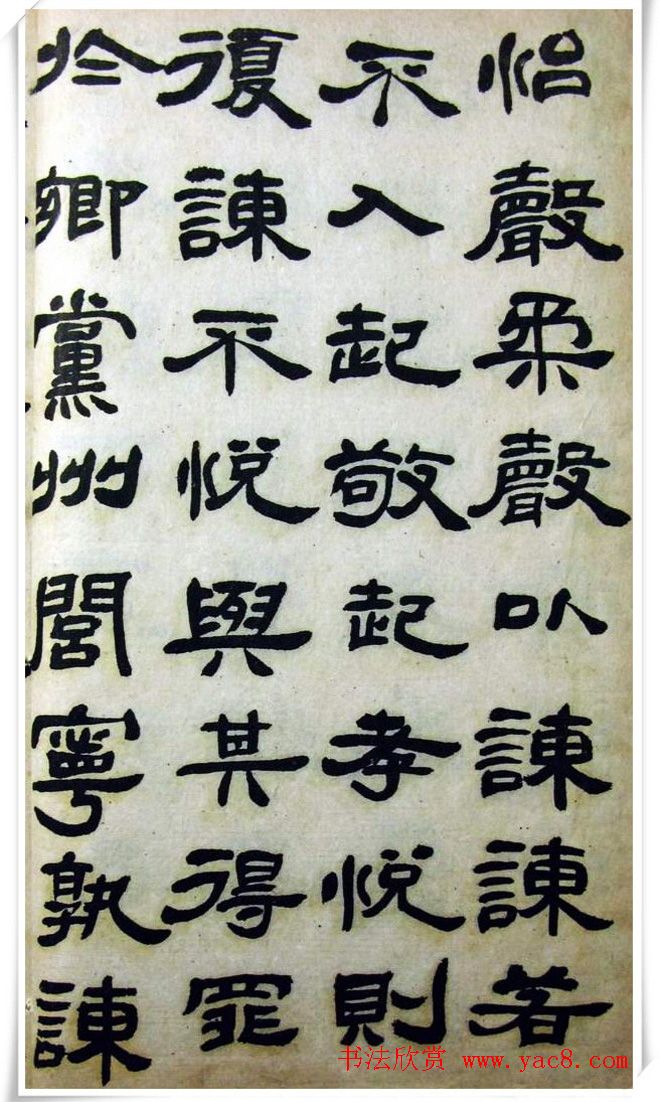 怡聲柔聲以諫諫若
不入起敬起孝悅則
復諫不悅與其得罪
於鄉黨州閭寧孰諫
书法欣赏 www.yac8.com